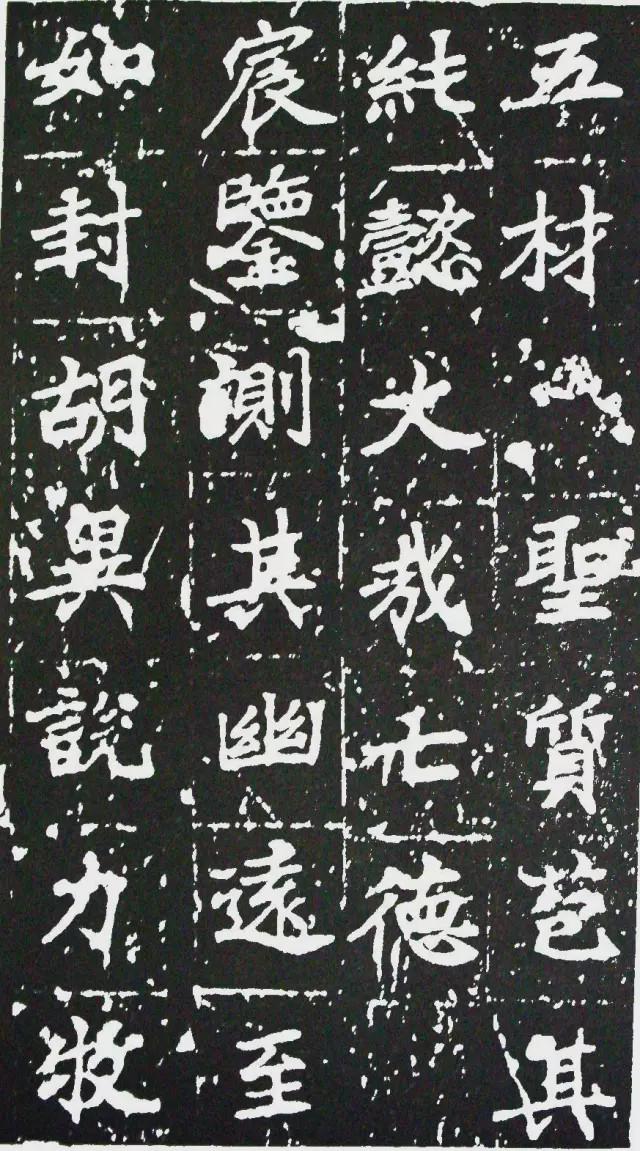 五材聖質苞其
純懿大哉德
宸鑒測其幽遠至
如封胡異說力牧